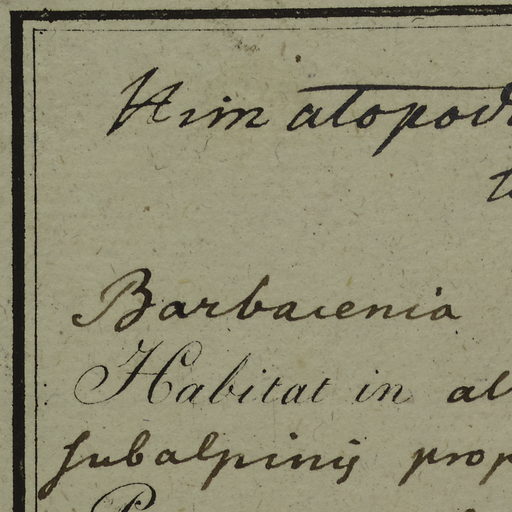 Himatopod
Barbacenia
Habitat in al
subalpinis prop